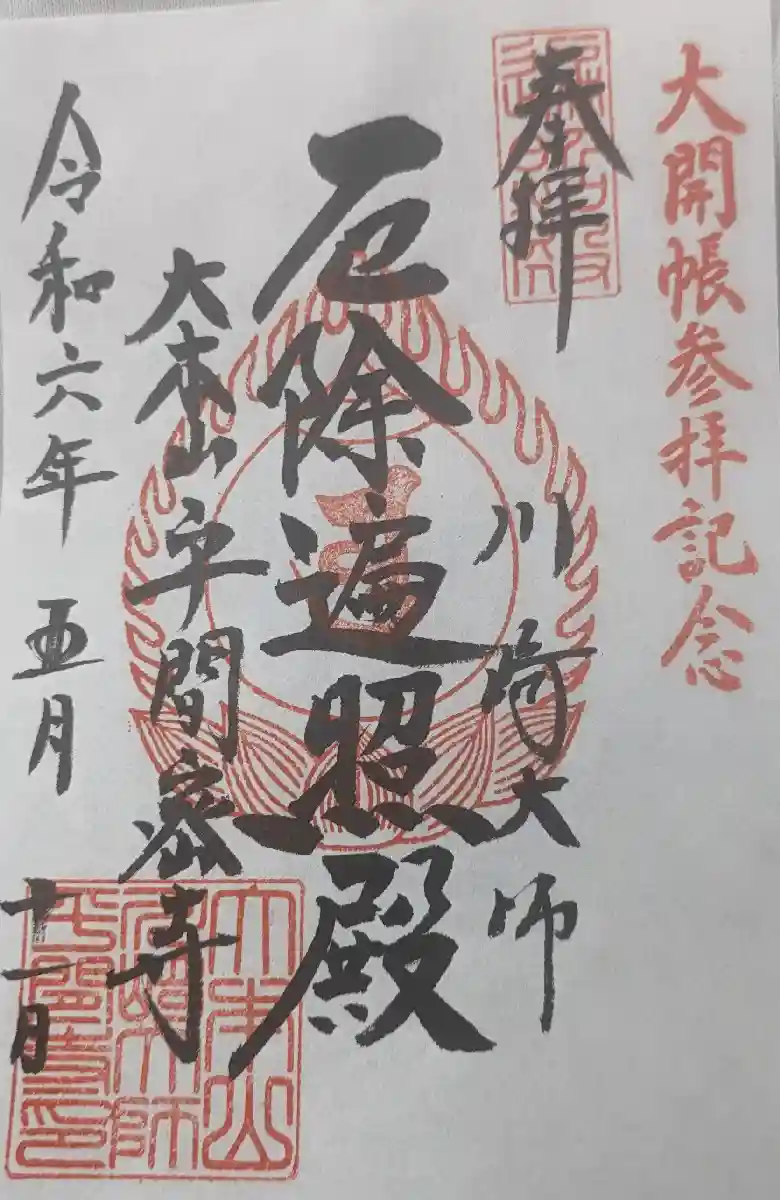 大開帳参拝記念
奉拝
川崎大師
厄除遍照殿
大本山平間寺
令和六年五月十一日
大本山